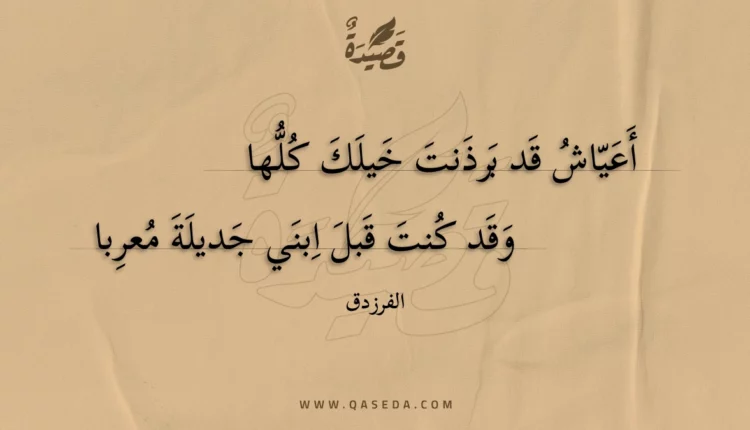 قَصِيدَةٌ
أَعَيّاشُ قَد بَرذَنتَ خَيلَكَ كُلُّها
وَقَد كُنتَ قَبلَ اِبنَي جَديلَةَ مُعرِبا
الفرزدق
WWW.QASEDA.COM